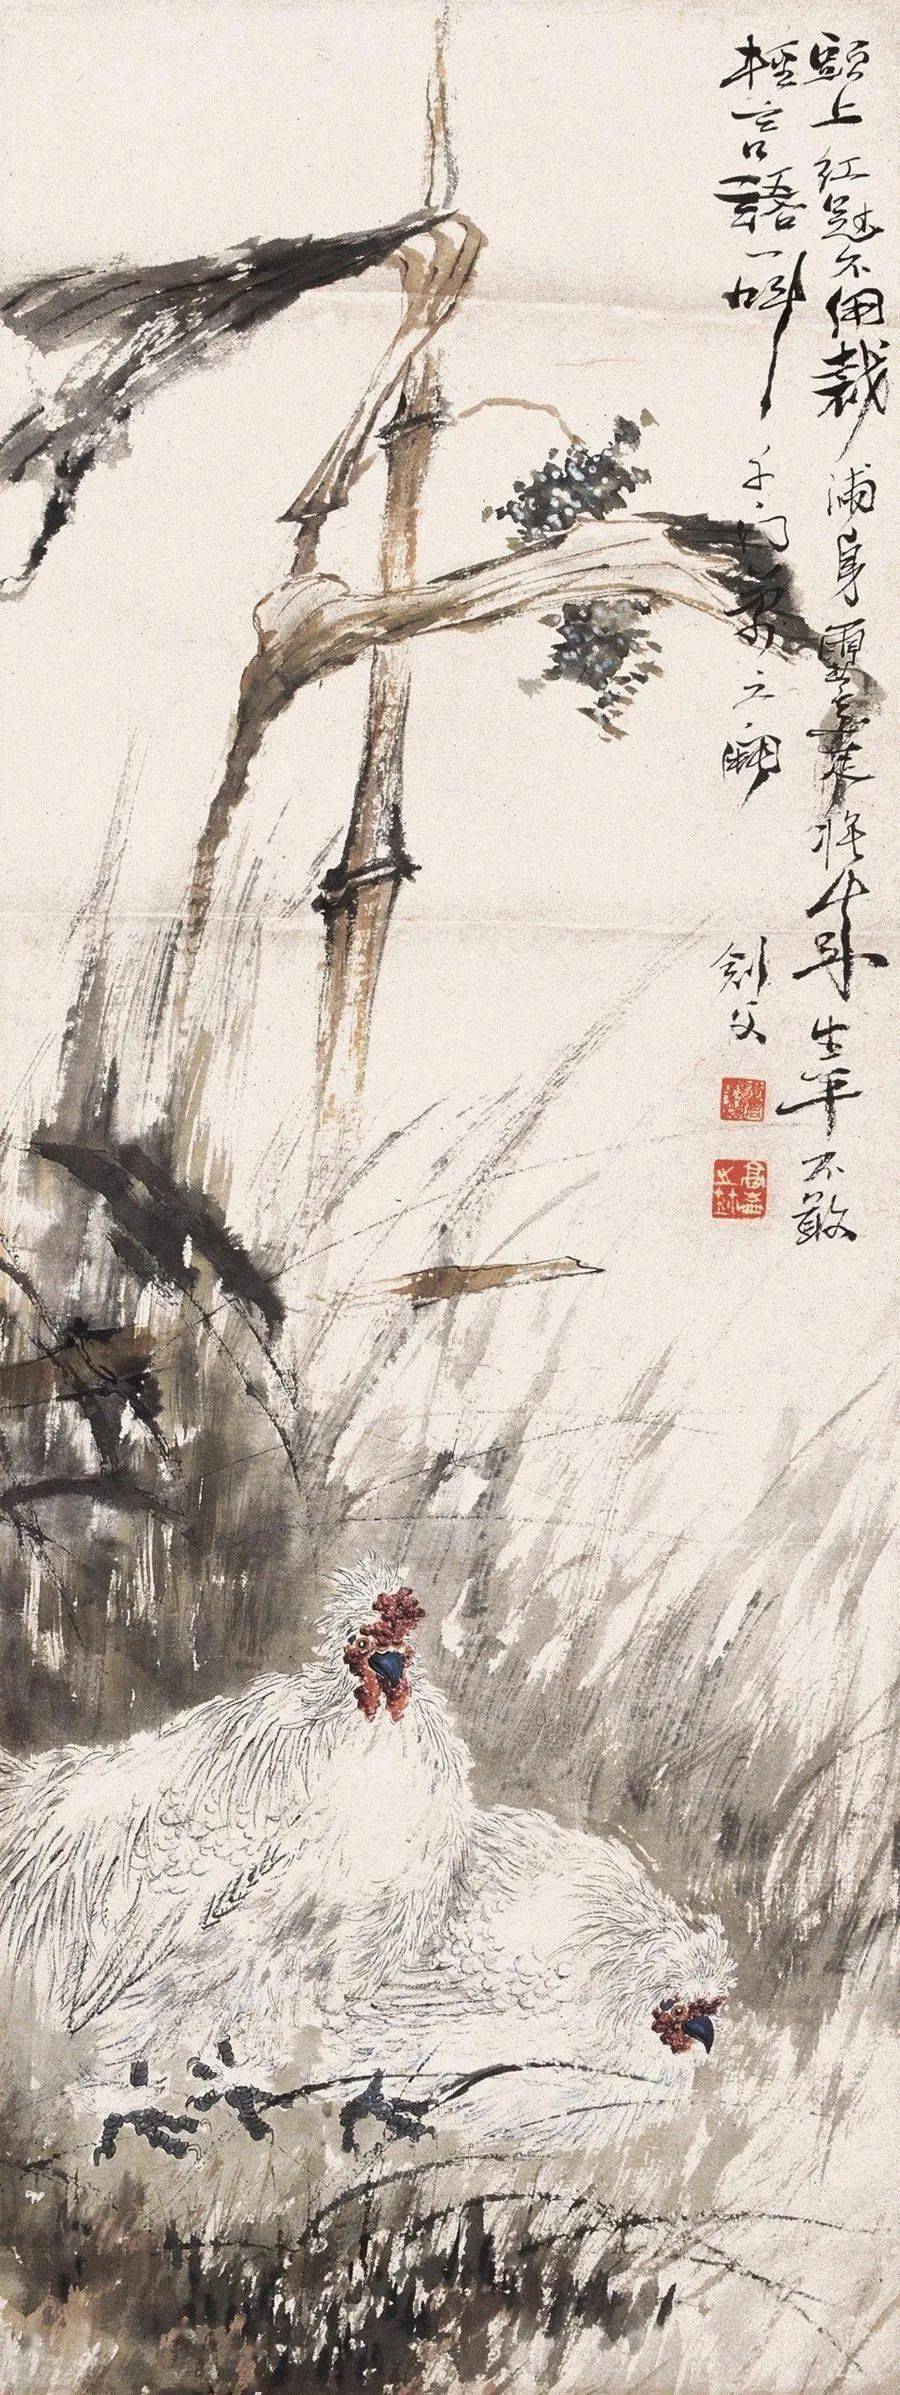 頭上紅冠不用裁滿身雪白走將來生平不敢
輕言語一叫千門萬戶開
劍父